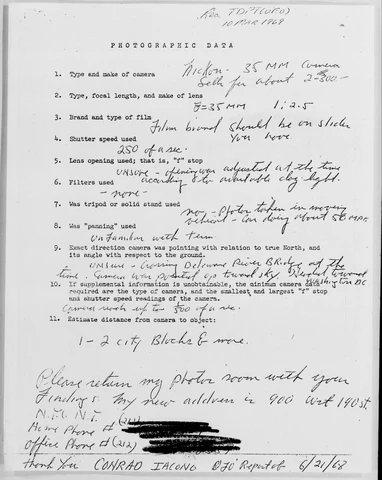 Rec TDPT(UFO)
10 MAR 1969
PHOTOGRAPHIC DATA
1. Type and make of camera
Nickon - 35 MM Camera
Sells for about 2-300.-
2. Type, focal length, and make of lens
F=35MM 1:2.5
3. Brand and type of film
Film brand should be on slides
You have
4. Shutter speed used
250 of a sec.
5. Lens opening used; that is, "f" stop
UNSURE - opening was adjusted at the time
according to available day light.
6. Filters used
- none -
7. Was tripod or solid stand used
no - Photos taken in moving
vehical - Car doing about 50 MPH
8. Was "panning" used
Unfamiliar with term
9. Exact direction camera was pointing with relation to true North, and
its angle with respect to the ground.
UNSURE - Crossing Delaware River Bridge at the
time. Camera was pointed up toward sky toward
Washington DC
10. If supplemental information is unobtainable, the minimum camera data
required are the type of camera, and the smallest and largest "f" stop
and shutter speed readings of the camera.
Camera reads up to 500 of a sec.
11. Estimate distance from camera to object:
1-2 city Blocks & more.
Please return my photos soon with your
Findings. My new address is 900 West 190 st.
N.Y.C N.Y.
Home Phone # (212)
Office Phone # (212)
Thank You CONRAD IACONO DJO Report of 6/21/68